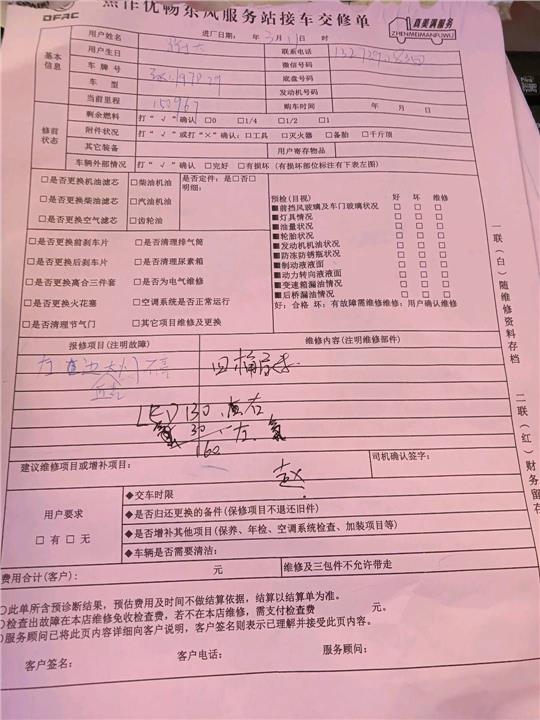 焦作优畅东风服务站接车交修单
DFAC
真美满服务
ZHENMEIMANFUWU
基本信息
用户姓名
进厂日期： 年 3月11日 时
用户生日
联系电话
车牌号
微信号码
车型
底盘号码
发动机号码
当前里程 150967
购车时间 年 月 日
修前状态
剩余燃料 打“√”确认 □0 □1/4 □1/2 □1
附件状况 打“√”或打“×”确认：□工具 □灭火器 □备胎 □千斤顶
其它装备
用户寄存物品
车辆外部情况 打“√”确认 □完好 □有损坏（有损坏部位标注有下表左图）
□是否更换机油滤芯 □柴油机油 是否定件：是□否□
明细：
□是否更换柴油滤芯 □汽油机油
□是否更换空气滤芯 □齿轮油
□是否更换前刹车片 □是否清理排气筒
□是否更换后刹车片 □是否清理尿素箱
□是否更换离合三件套 □是否为电气维修
□是否更换火花塞 □空调系统是否正常运行
□是否清理节气门 □其它项目维修及更换
预检(目视) 好 坏 维修
■前挡风玻璃及车门玻璃状况 □ □ □
■灯具情况 □ □ □
■油量状况 □ □ □
■轮胎状况 □ □ □
■发动机机油状况 □ □ □
■防冻防锈瓶状况 □ □ □
■制动液液面 □ □ □
■动力转向液液面 □ □ □
■变速箱漏油情况 □ □ □
■后桥漏油情况 □ □ □
好：合格 坏：有故障需维修维修：用户确认维修
报修项目(注明故障)
维修内容(注明维修部件)
LED 130
30
160
建议维修项目或增补项目：
赵
司机确认签字：
用户要求
□有 □无
◆交车时限
◆是否归还更换的备件(保修项目不退还旧件)
◆是否增补其他项目(保养、年检、空调系统检查、加装项目等)
◆车辆是否需要清洁：
费用合计(客户)： 元
维修及三包件不允许带走
◇此单所含预诊断结果，预估费用及时间不做结算依据，结算以结算单为准。
◇检查出故障在本店维修免收检查费，若不在本店维修，需支付检查费 元。
◇服务顾问已将此页内容详细向客户说明，客户签名则表示已理解并接受此页内容。
客户签名： 客户电话： 服务顾问：
一联（白）随维修资料存档
二联（红）财务留存